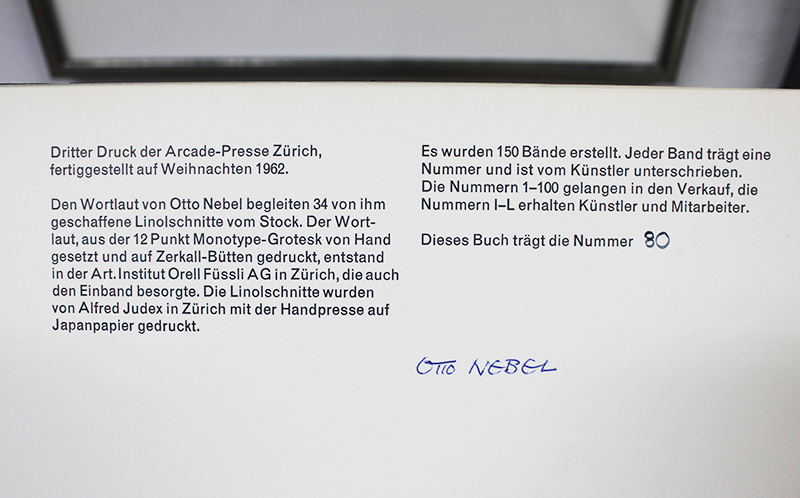 Dritter Druck der Arcade-Presse Zürich,
fertiggestellt auf Weihnachten 1962.
Den Wortlaut von Otto Nebel begleiten 34 von ihm
geschaffene Linolschnitte vom Stock. Der Wort-
laut, aus der 12 Punkt Monotype-Grotesk von Hand
gesetzt und auf Zerkall-Bütten gedruckt, entstand
in der Art. Institut Orell Füssli AG in Zürich, die auch
den Einband besorgte. Die Linolschnitte wurden
von Alfred Judex in Zürich mit der Handpresse auf
Japanpapier gedruckt.
Es wurden 150 Bände erstellt. Jeder Band trägt eine
Nummer und ist vom Künstler unterschrieben.
Die Nummern 1–100 gelangen in den Verkauf, die
Nummern I–L erhalten Künstler und Mitarbeiter.
Dieses Buch trägt die Nummer 80
OTTO NEBEL